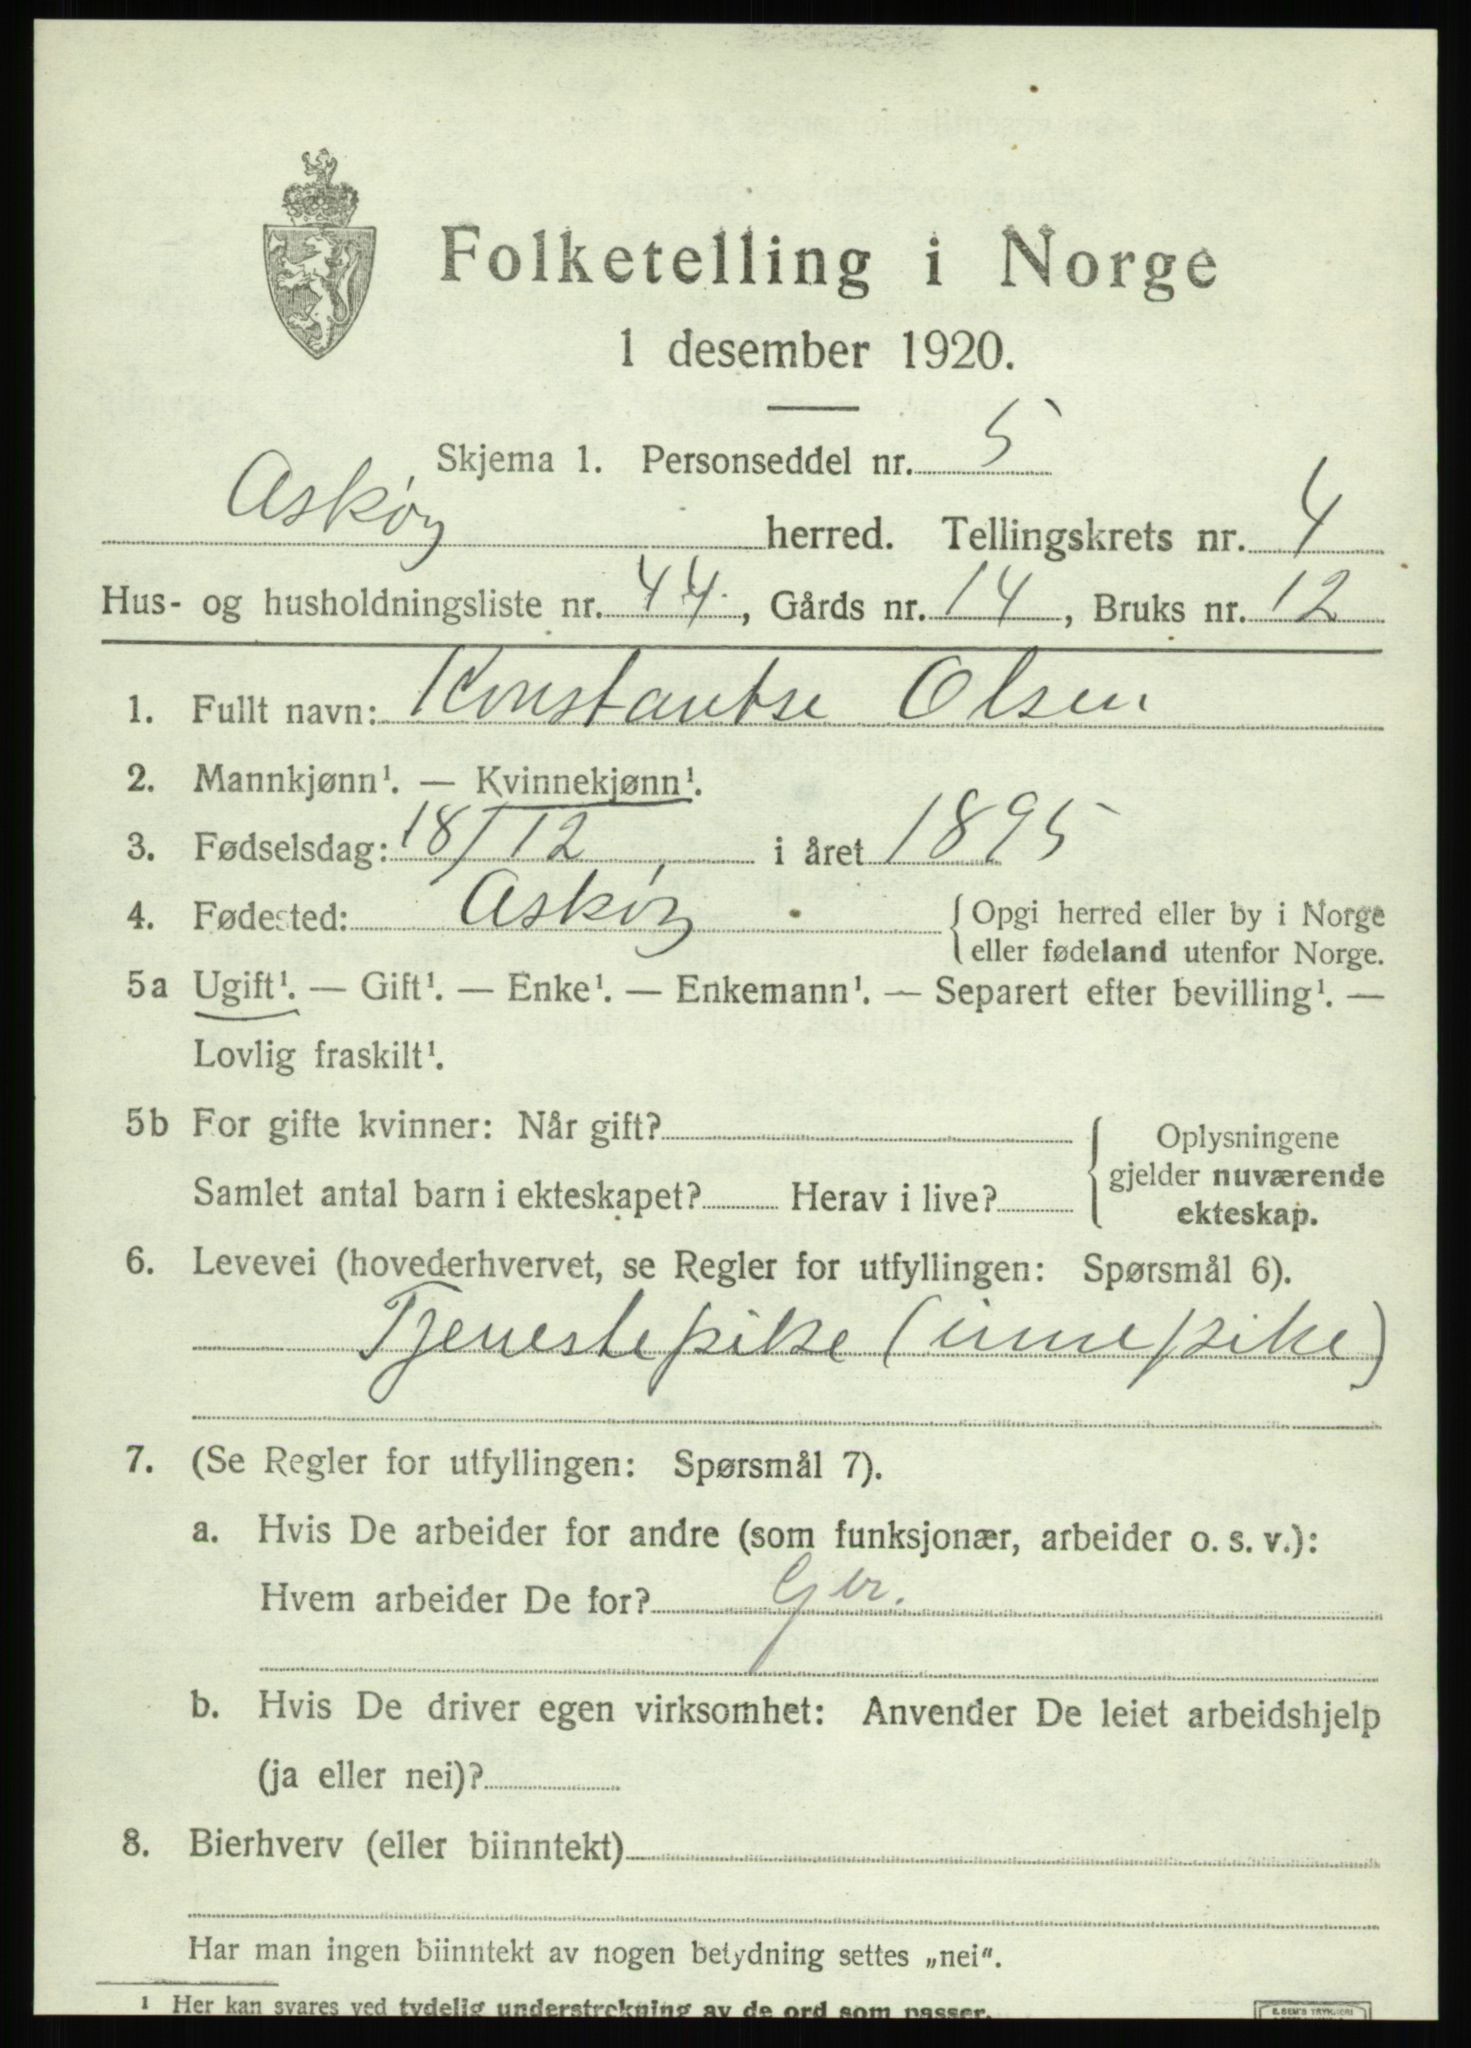 Folketelling i Norge
1 desember 1920.
Skjema 1. Personseddel nr. 5
Askøy herred. Tellingskrets nr. 4
Hus- og husholdningsliste nr. 44, Gårds nr. 14, Bruks nr. 12
1. Fullt navn: Konstantse Olsen
2. Mannkjønn¹. — Kvinnekjønn¹.
3. Fødselsdag: 18/12 i året 1895
4. Fødested: Askøy { Opgi herred eller by i Norge
eller fødeland utenfor Norge.
5a Ugift¹. — Gift¹. — Enke¹. — Enkemann¹. — Separert efter bevilling¹. —
Lovlig fraskilt¹.
5b For gifte kvinner: Når gift?
Samlet antal barn i ekteskapet? Herav i live?
{ Oplysningene
gjelder nuværende
ekteskap.
6. Levevei (hovederhvervet, se Regler for utfyllingen: Spørsmål 6).
Tjenestepike (innepike)
7. (Se Regler for utfyllingen: Spørsmål 7).
a. Hvis De arbeider for andre (som funksjonær, arbeider o. s. v.):
Hvem arbeider De for?
b. Hvis De driver egen virksomhet: Anvender De leiet arbeidshjelp
(ja eller nei)?
8. Bierhverv (eller biinntekt)
Har man ingen biinntekt av nogen betydning settes „nei“.
¹ Her kan svares ved tydelig understrekning av de ord som passer.